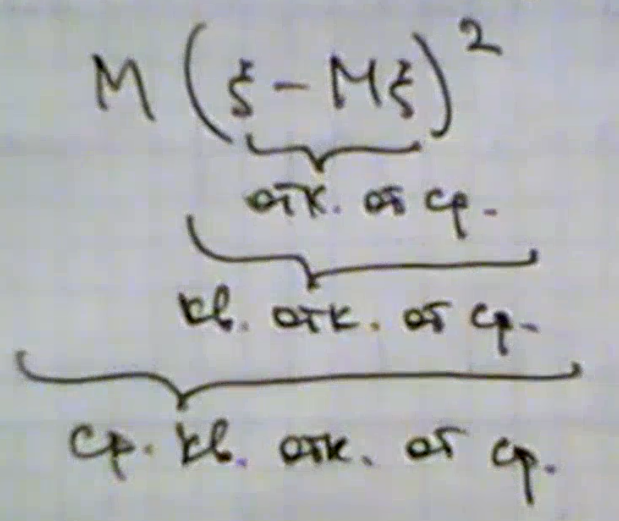 M (ξ - Mξ)²
отк. от ср.
кв. отк. от ср.
ср. кв. отк. от ср.